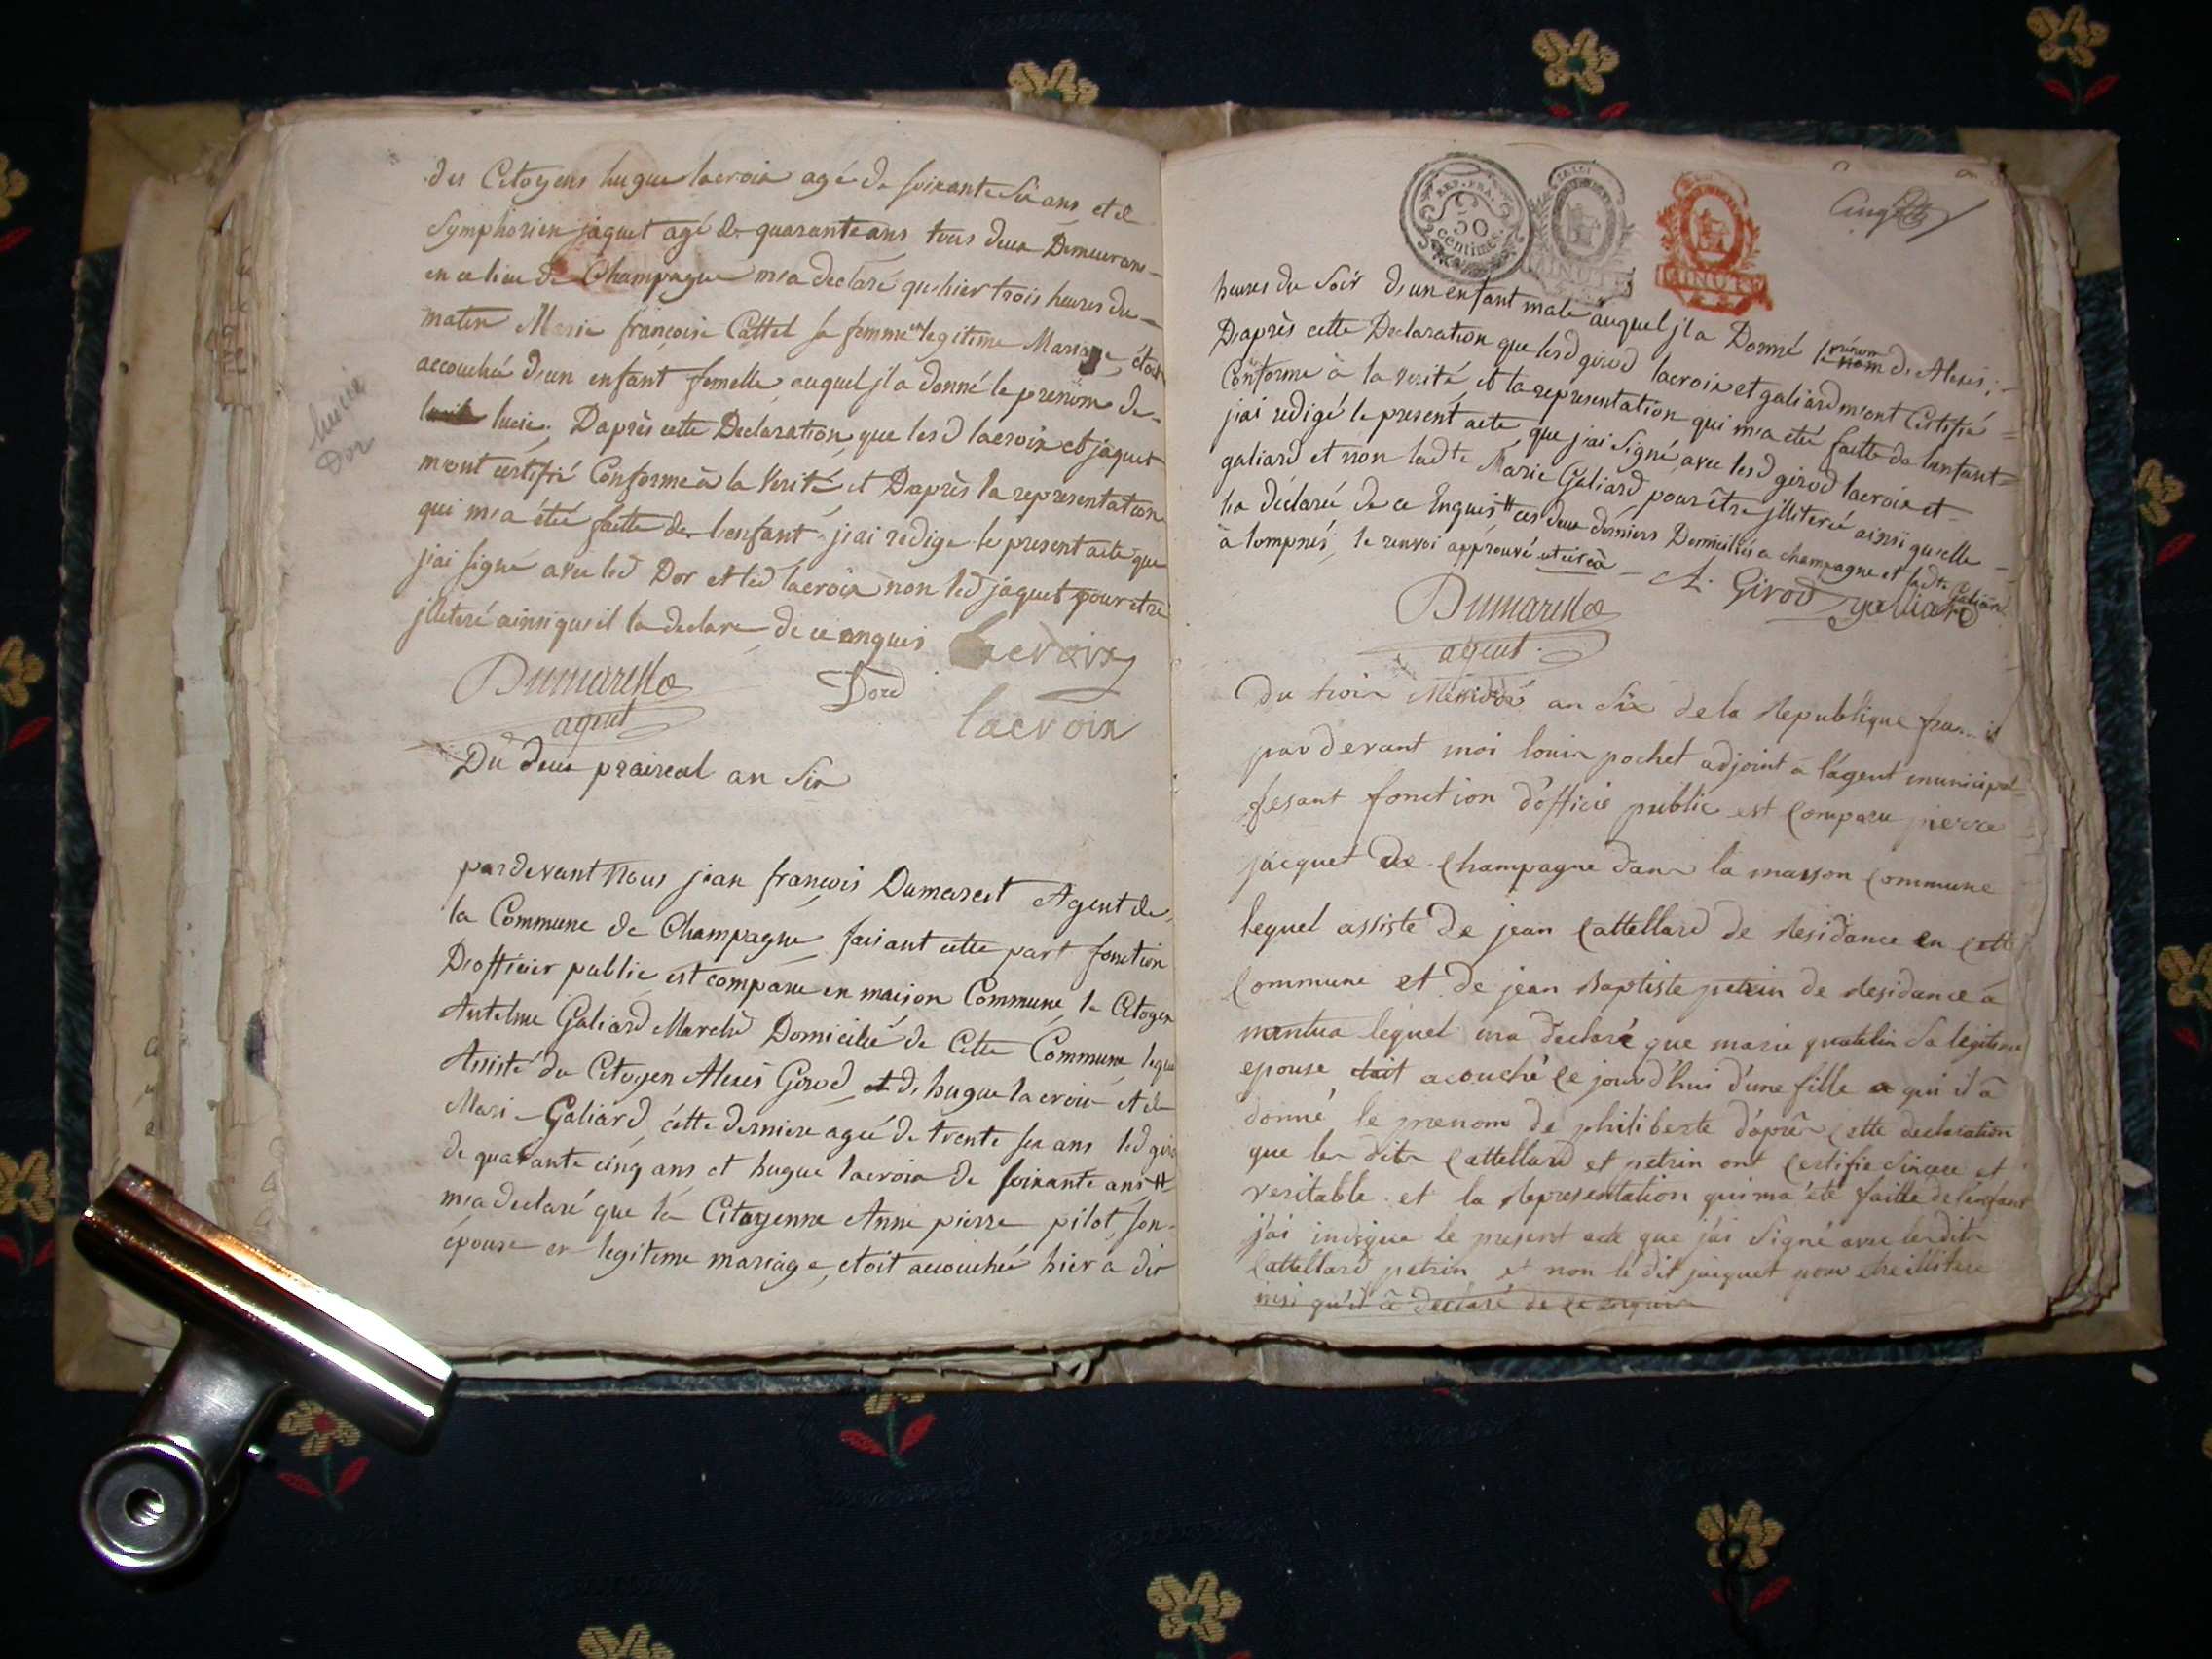 des Citoyens hugue lacroix agé de soixante six ans et de
Symphorien jaquet agé de quarante ans tous deux Demeurans
en ce lieu de Champagne m'a declaré qu'hier trois heures du
matin Marie françoise Cattel sa femme en legitime Mariage, étoit
accouchée d'un enfant femelle, auquel jl a donné le prenom de
lucie. D'après cette Declaration, que lesd lacroix et jaquet
m'ont certifié Conforme à la Verité, et D'après la representation
qui m'a été faitte de l'enfant j'ai redigé le present acte que
j'ai signé avec led Dor et led lacroix non led jaquet pour etre
jlleteré ainsi qu'il la declaré de ce enquis
lucie
Dor
lacroix
Dumarest
agent
Dord
lacroix
Du deux praireal an Six
pardevant Nous jean françois Dumarest Agent de
la Commune de Champagne, faisant cette part fonction
D'officier public, est comparu en maison Commune, le Citoyen
Antelme Galiard Marchd Domicilié de Cette Commune, lequel
Assisté du Citoyen Alexis Girod, et de hugue lacroix et de
Marie Galiard, cette derniere agée de trente six ans led giro
de quarante cinq ans et hugue lacroix de soixante ans #
m'a declaré que la Citoyenne Anne pierre pilot, son
épouse en legitime mariage, etoit accouchée hier a dix
REP. FRA.
50
centimes
MINUTE
MINUTE
heures du Soir d'un enfant male auquel jl a Donné le prénom nom d'Alexis;
D'après cette Declaration que lesd girod lacroix et galiard m'ont Certifié
Conforme à la verité, et la representation qui m'a eté faitte de l'enfant
j'ai redigé le present acte, que j'ai Signé avec lesd girod lacroix et
galiard et non ladte Marie Galiard pour être jlliterée ainsi qu'elle
la déclaré de ce Enquis # ces deux derniers Domiciliés a champagne et ladte Galiard
à lompnés, le renvoi approuvé
A. Girod galliard
Dumarest
agent
Du trois Messidor an Six de la Republique
par devant moi louis pochet adjoint a l'agent municipal
fesant fonction d'officié public est comparu pierre
jacquet de Champagne dans la maison commune
lequel assisté de jean Cattellard de Residance en cette
commune et de jean Baptiste petrin de Residance à
mantua lequel ma declaré que marie quatelin sa legitime
epouse etoit acouché ce jourd'hui d'une fille a qui il a
donné le prenom de philiberte d'après cette declaration
que les dits Cattellard et petrin ont certifie sincere et
veritable et la Representation qui ma été faitte de l'enfant
j'ai indigue le present acte que j'ai Signé avec les dits
Cattellard petrin et non le dit jacquet pour etre illitere
insi qu'il a declaré de ce enquis